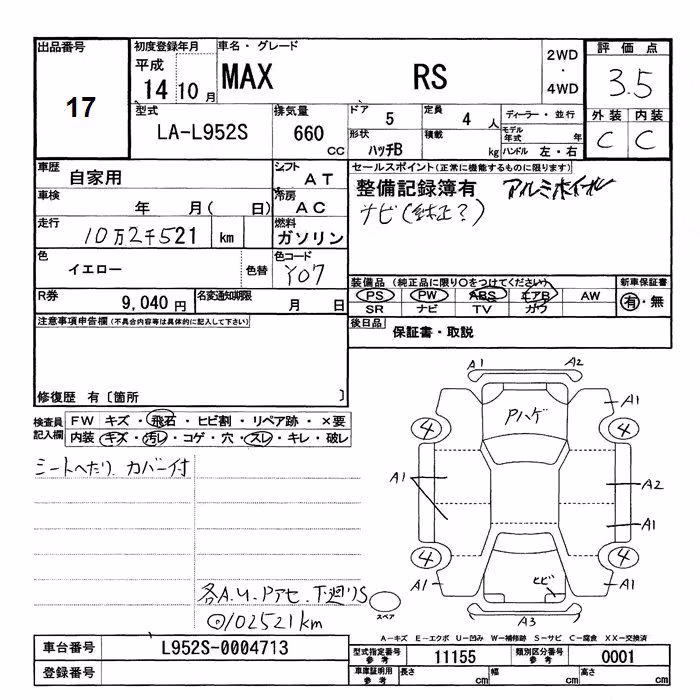 出品番号
17
初度登録年月
平成
14 10 月
車名・グレード
MAX RS
2WD
・
4WD
評価点
3.5
型式
LA-L952S
排気量
660
CC
ドア
5
定員
4 人
形状
ハッチB
積載
kg
ディーラー・並行
モデル年式 年
ハンドル 左・右
外装 内装
C C
車歴
自家用
シフト
AT
車検
年 月( 日)
冷房
AC
走行
10万2千521 km
燃料
ガソリン
色
イエロー
色替
色コード
Y07
R券
9,040 円
名変通知期限
月 日
セールスポイント(正常に機能するものに限ります)
整備記録簿有 アルミホイール
ナビ(純正?)
装備品(純正品に限り○をつけてください)
PS PW ABS エアB AW
SR ナビ TV カワ
新車保証書
有・無
後日品
保証書・取説
注意事項申告欄(不具合内容等は具体的に記入して下さい)
修復歴 有〔箇所 〕
検査員
記入欄
FW キズ・飛石・ヒビ割・リペア跡・×要
内装 キズ・汚レ・コゲ・穴・スレ・キレ・破レ
シートへたり カバー付
各A.U.Pアセ.下廻りS
⊙102521km
A1 A2
Pハゲ
A1
4 4
A1
A2
A1
4 4
A1 A1
ヒビ
A3
スペア
A-キズ E-エクボ U-凹み W-補修跡 S-サビ C-腐食 XX-交換済
車台番号
L952S-0004713
登録番号
型式指定番号
参考
11155
類別区分番号
参考
0001
車庫証明用
参考
長さ cm 幅 cm 高さ cm